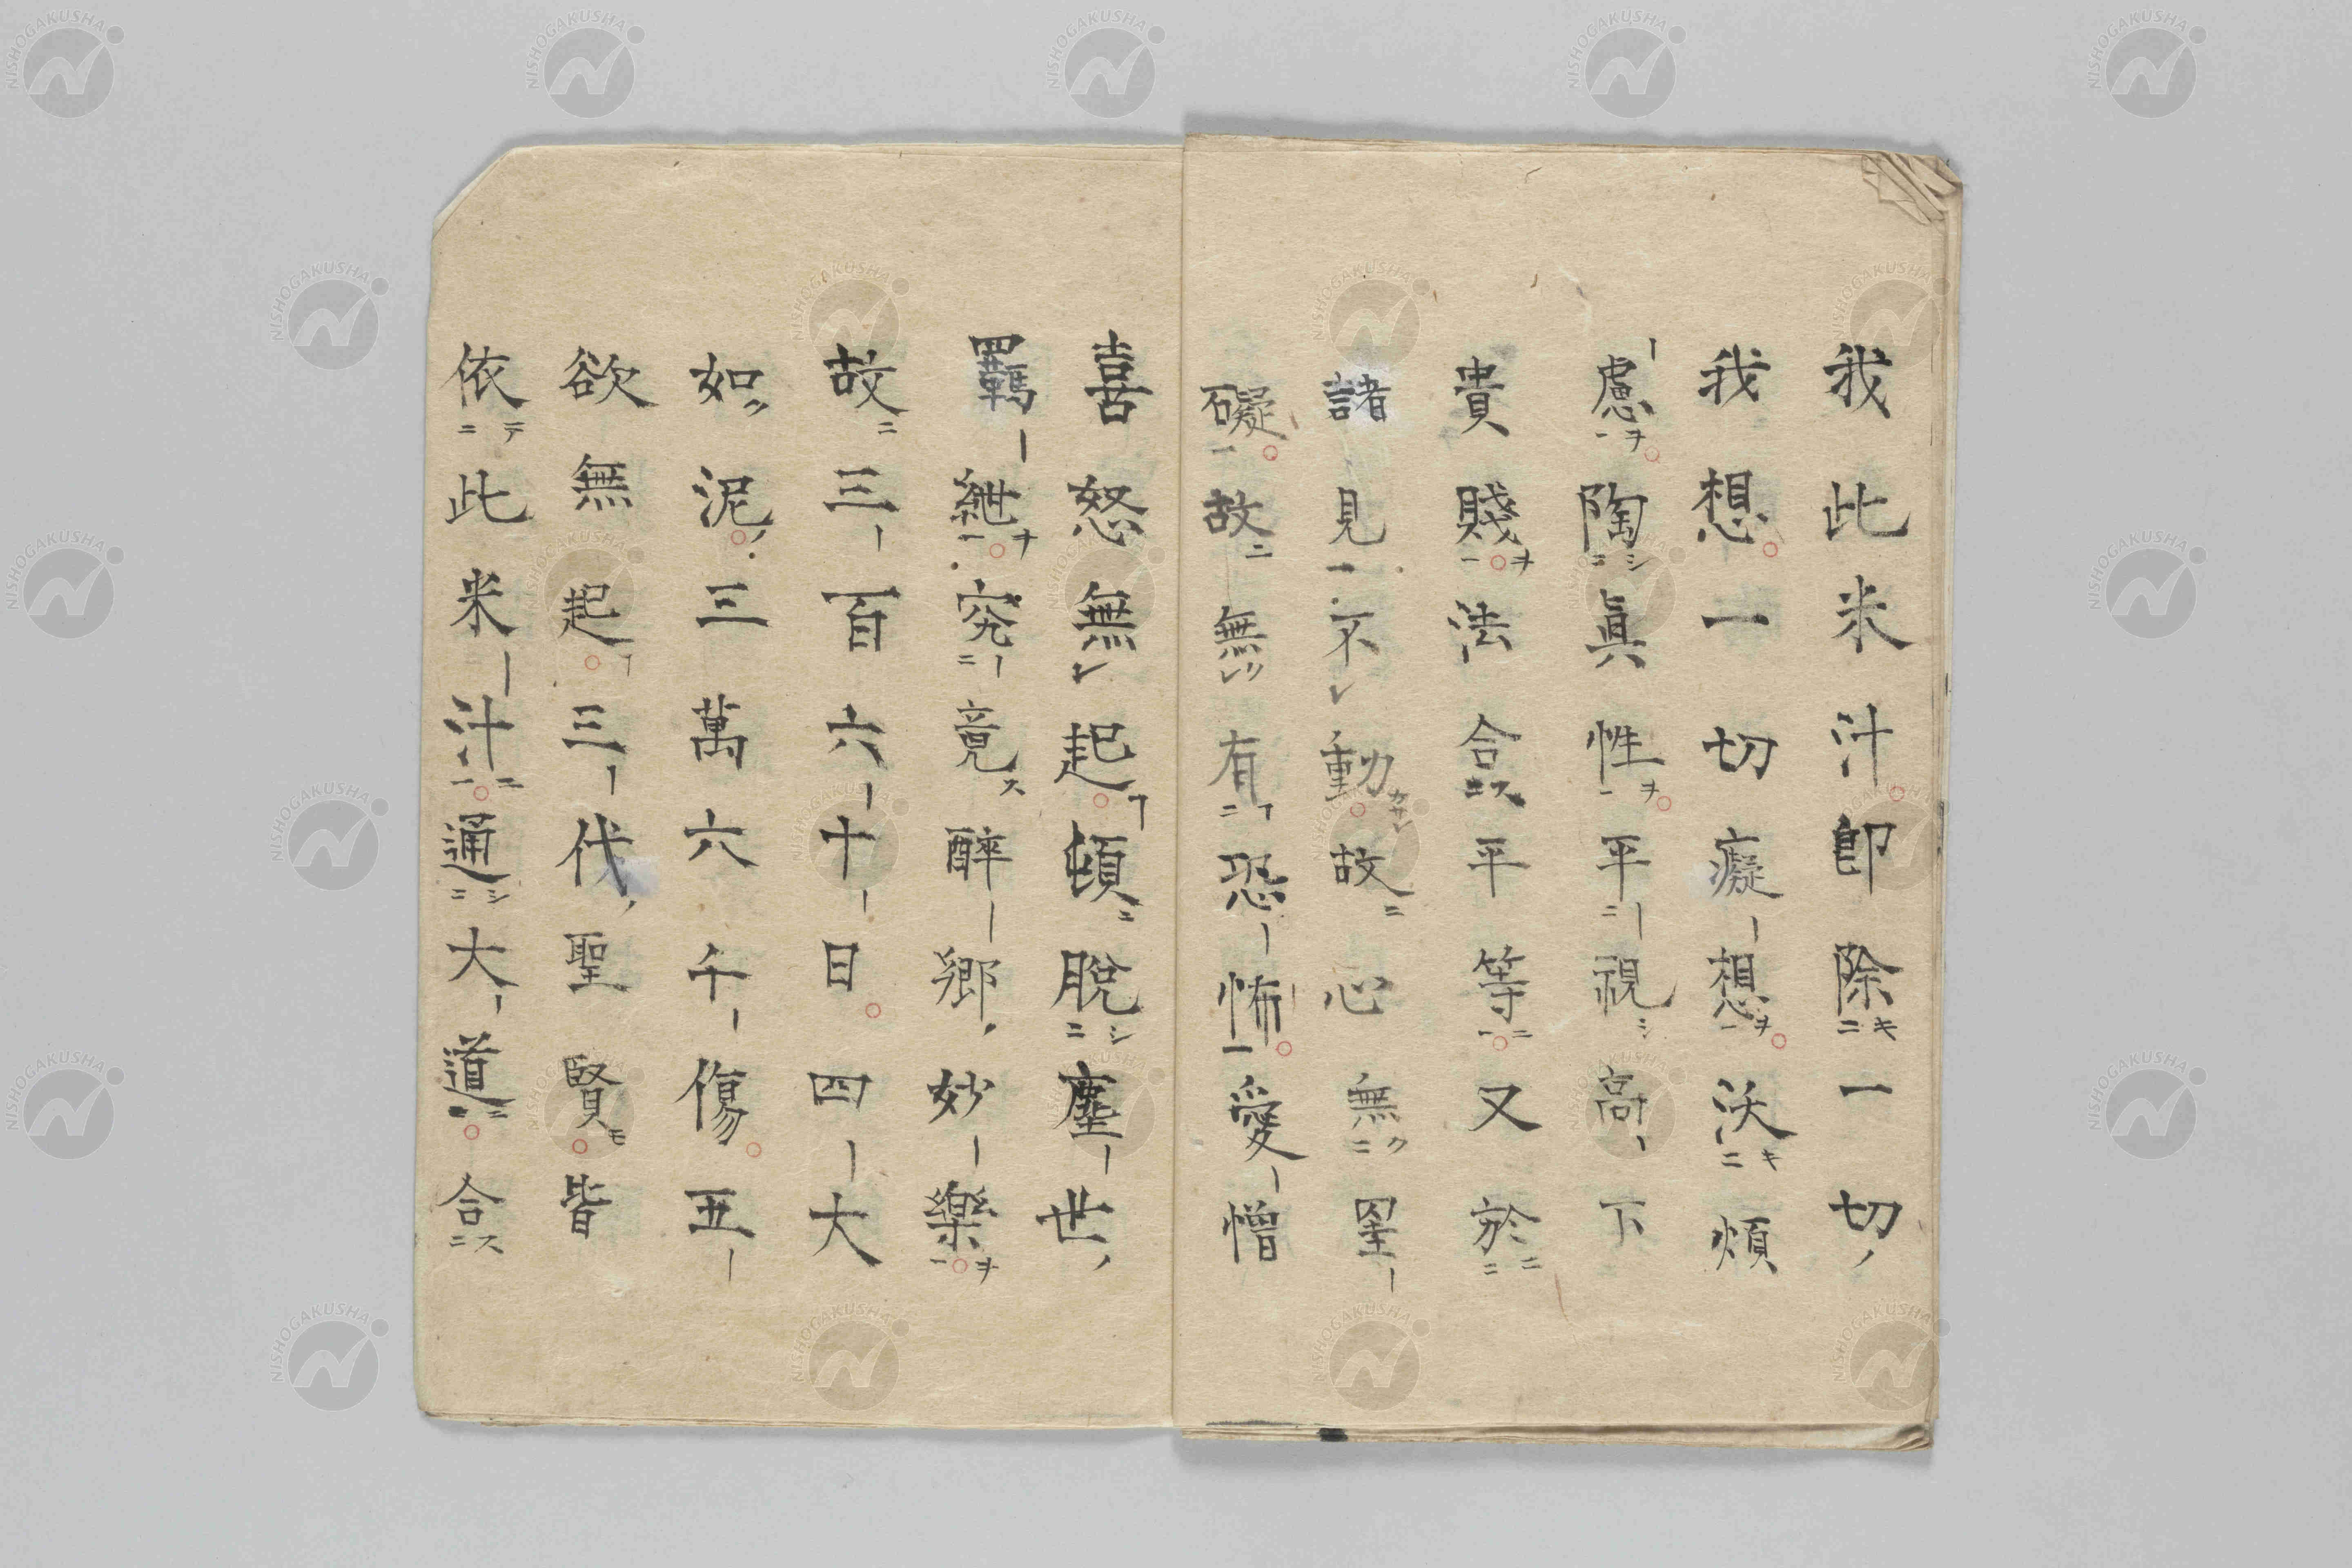 我此米汁即除一切
我想一切癡想沃煩
慮陶眞性平視高下
貴賤法合平等又於
諸見不動故心無罣
礙故無有恐怖愛憎
喜怒無起頓脫塵世
羈紲究竟醉鄉妙樂
故三百六十日四大
如泥三萬六千傷五
欲無起三代聖賢皆
依此米汁通大道合